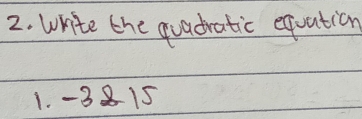 2. Write the quadratic equation
1. -3 & 15